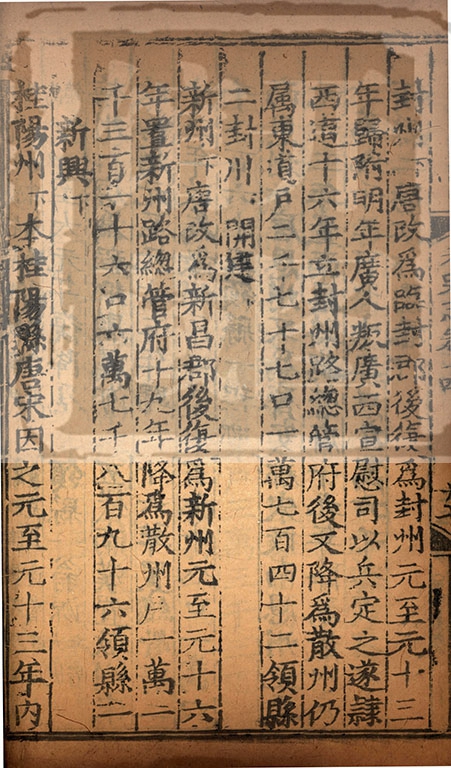 封州下唐改為臨封郡後復為封州元至元十三
年歸附明年廣人叛廣西宣慰司以兵定之遂隸
西道十六年立封州路總管府後又降為散州仍
属東道戶二千七十七口一萬七百四十二領縣
二封川下開建
新州下唐改為新昌郡後復為新州元至元十六
年置新州路總管府十九年降為散州戶一萬一
千三百六十六口六萬七千八百九十六領縣一
新興下
桂陽州下本桂陽縣唐宋因之元至元十三年內